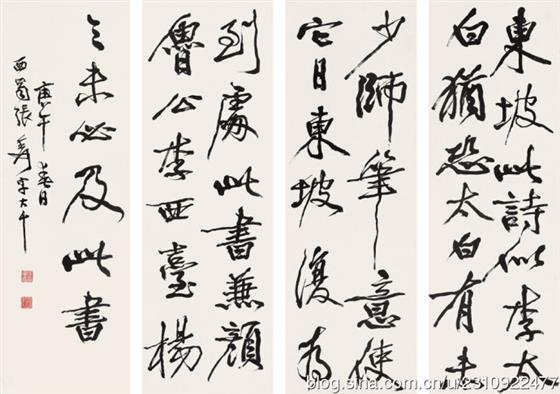 東坡此詩似李太
白猶恐太白有未
少師筆意使
它日東坡復為
到處此書兼顏
魯公李西臺楊
之未必及此書
庚午春日
西蜀張爰大千
blog.sina.com.cn/u/2310922477